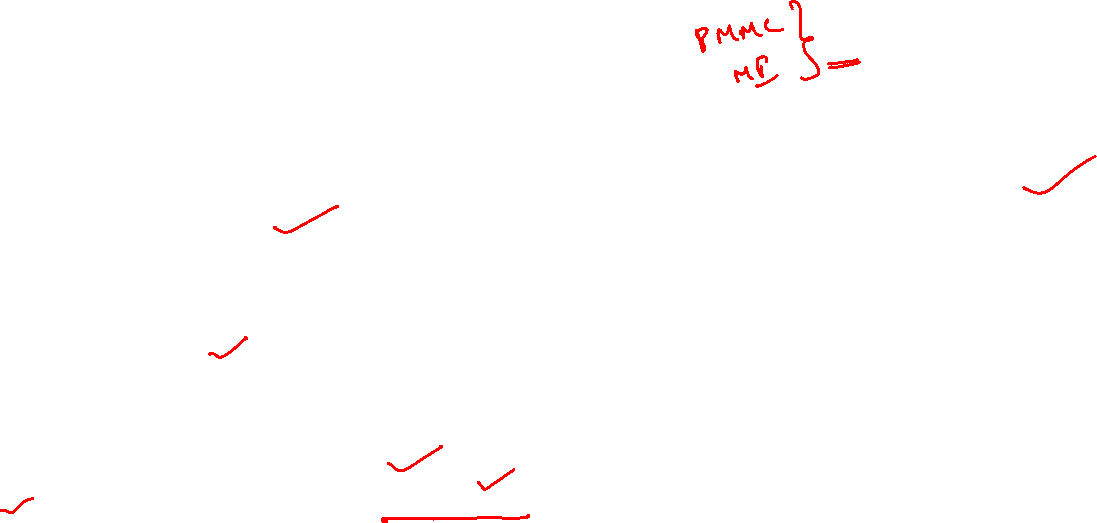 PMMC
MI